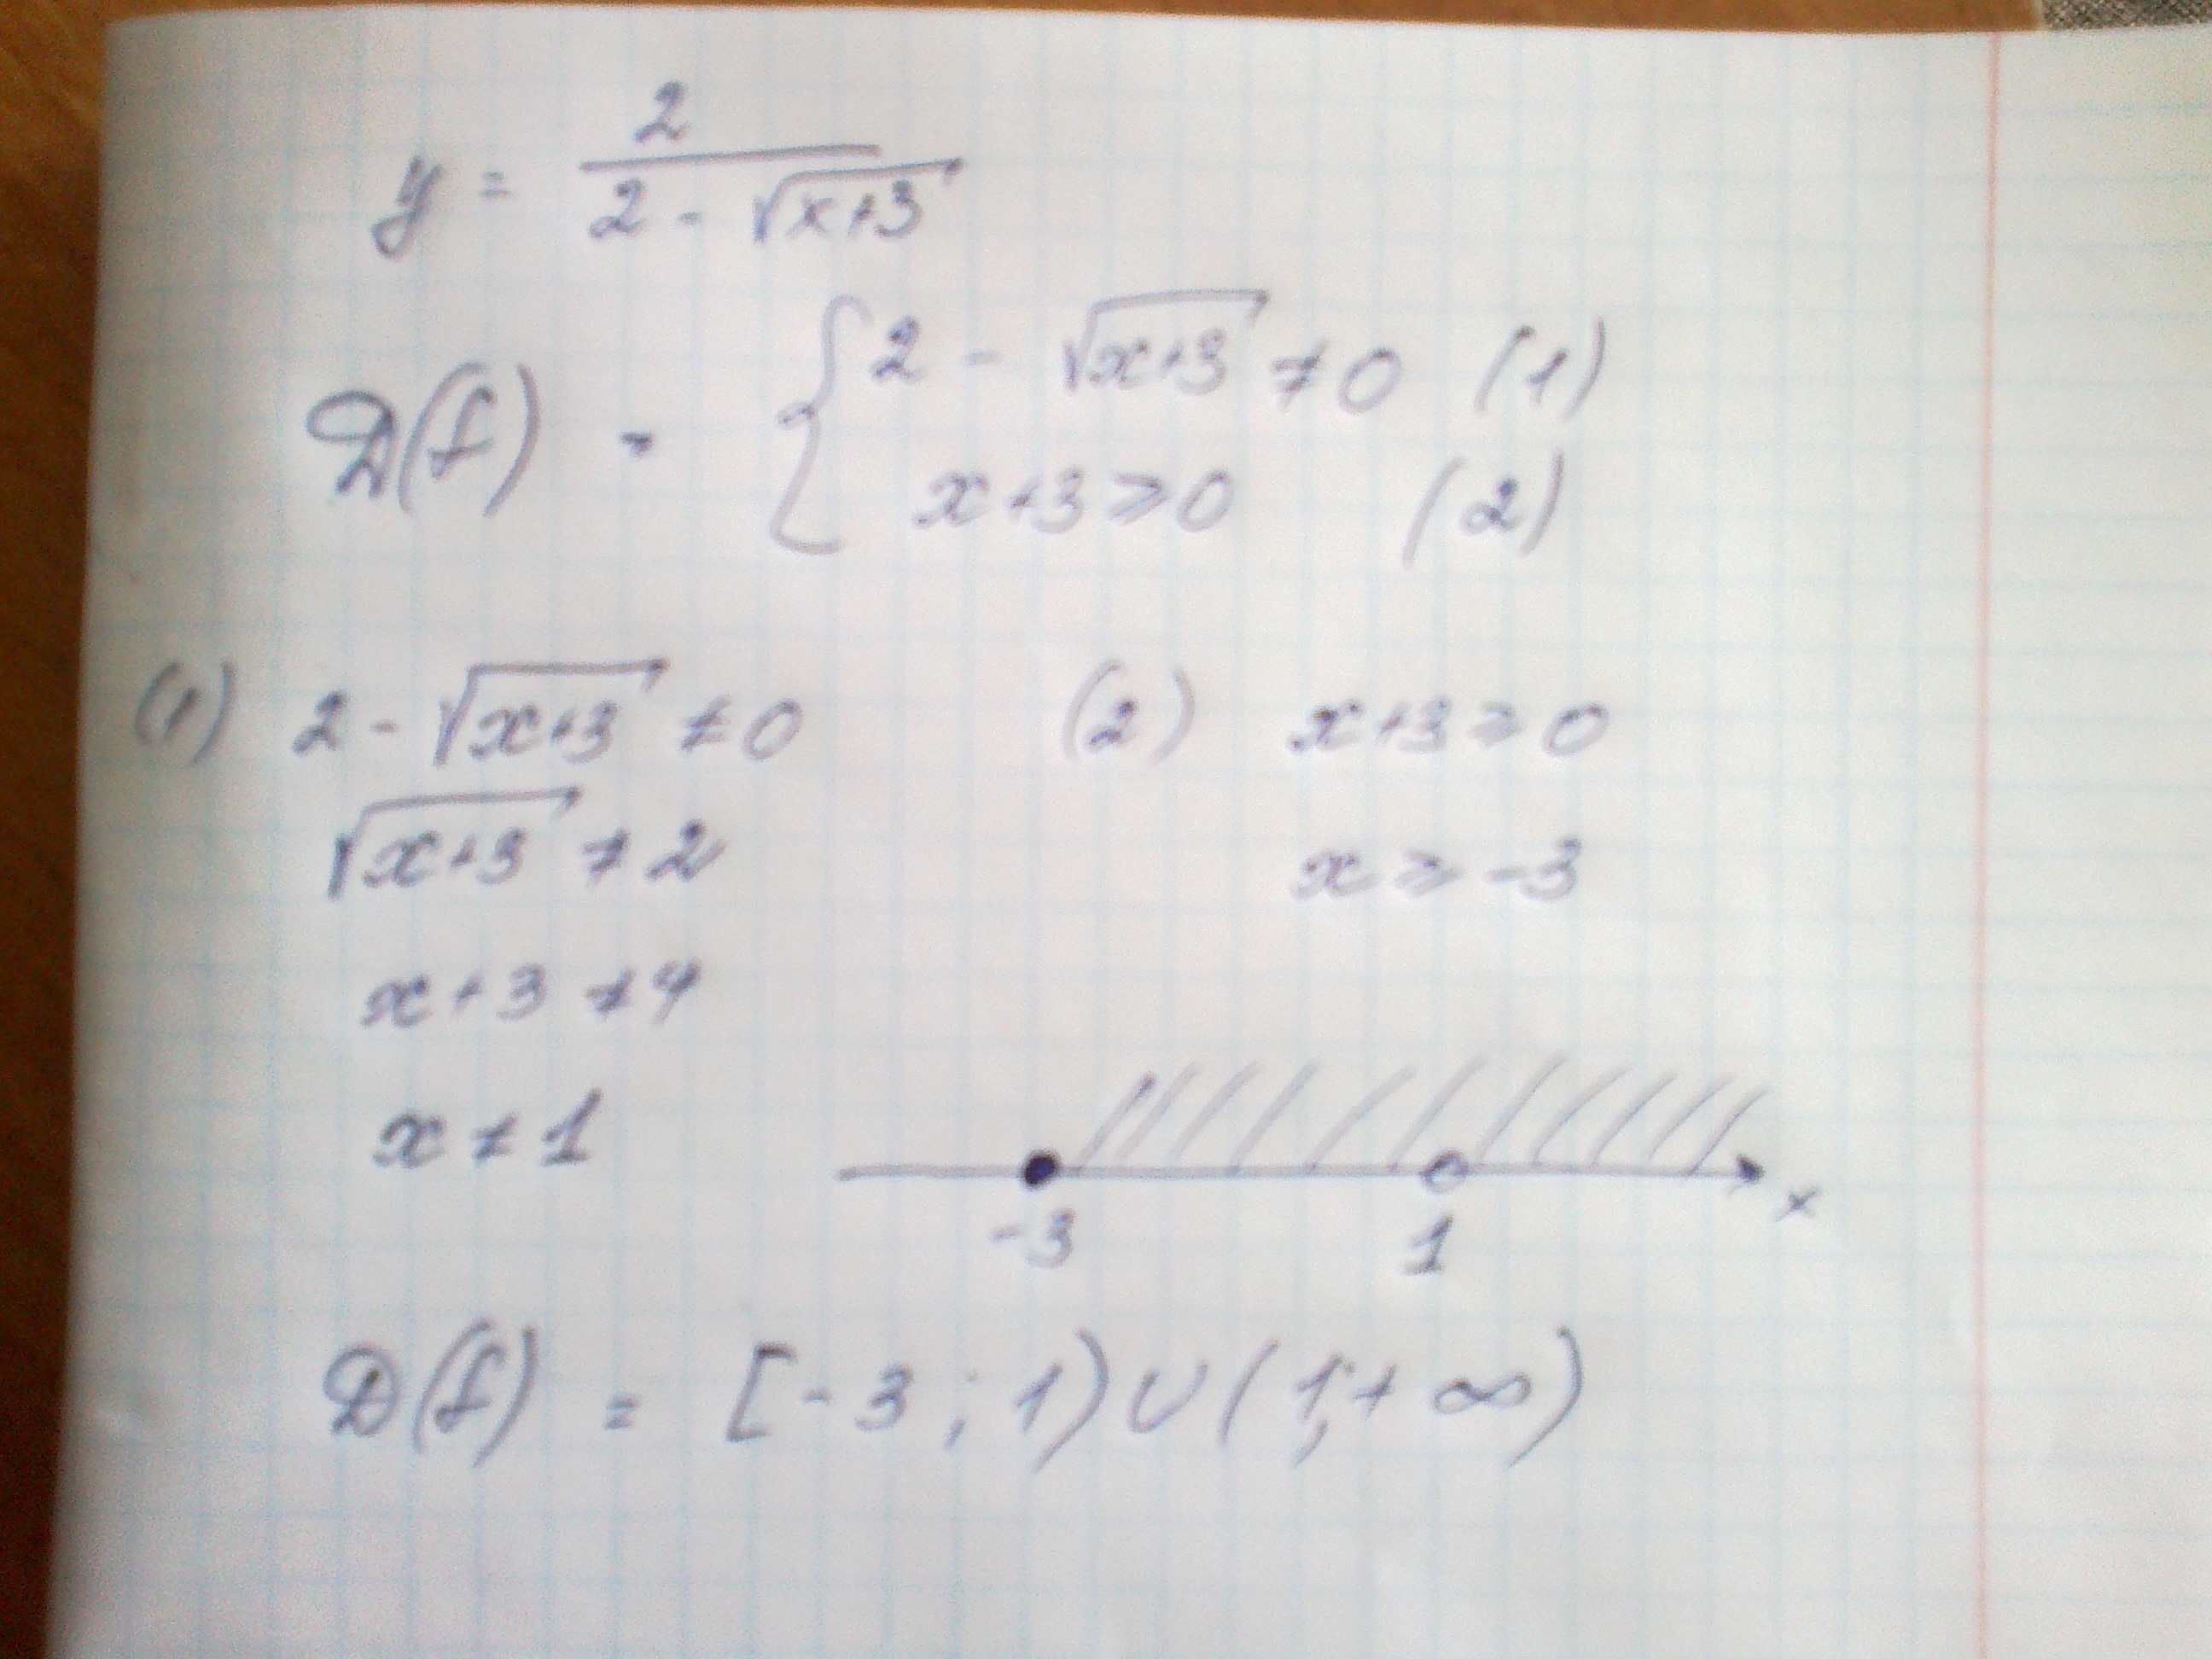 y = 2 / (2 - √(x+3))
D(f) = { 2 - √(x+3) ≠ 0 (1)
x+3 ≥ 0 (2)
(1) 2 - √(x+3) ≠ 0 (2) x+3 ≥ 0
√(x+3) ≠ 2 x ≥ -3
x+3 ≠ 4
x ≠ 1
-3 1 x
D(f) = [-3 ; 1) ∪ (1; +∞)